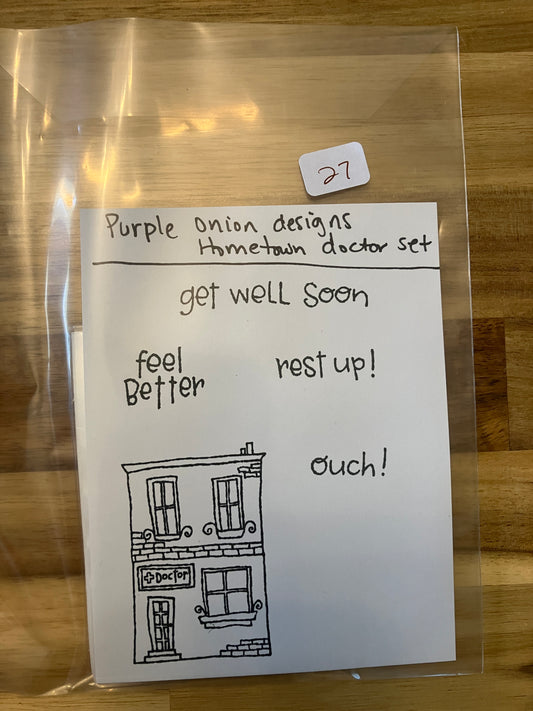 27
Purple onion designs
Hometown doctor set
get well soon
feel
Better
rest up!
ouch!
Doctor